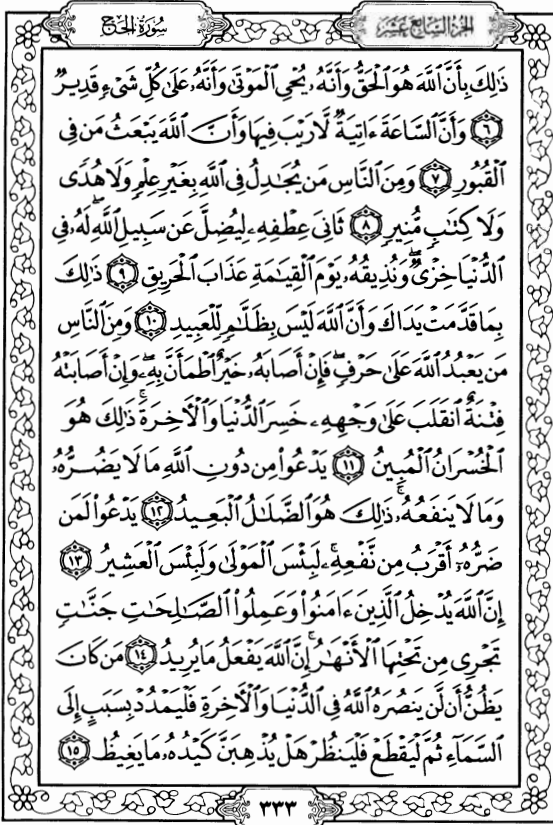 سُورَةُ الحَجِّ
الجُزْءُ السَّابِعَ عَشَرَ
ذَٰلِكَ بِأَنَّ ٱللَّهَ هُوَ ٱلْحَقُّ وَأَنَّهُۥ يُحْىِ ٱلْمَوْتَىٰ وَأَنَّهُۥ عَلَىٰ كُلِّ شَىْءٍ قَدِيرٌ
﴿٦﴾ وَأَنَّ ٱلسَّاعَةَ ءَاتِيَةٌ لَّا رَيْبَ فِيهَا وَأَنَّ ٱللَّهَ يَبْعَثُ مَن فِى
ٱلْقُبُورِ ﴿٧﴾ وَمِنَ ٱلنَّاسِ مَن يُجَٰدِلُ فِى ٱللَّهِ بِغَيْرِ عِلْمٍ وَلَا هُدًى
وَلَا كِتَٰبٍ مُّنِيرٍ ﴿٨﴾ ثَانِىَ عِطْفِهِۦ لِيُضِلَّ عَن سَبِيلِ ٱللَّهِ ۖ لَهُۥ فِى
ٱلدُّنْيَا خِزْىٌ ۖ وَنُذِيقُهُۥ يَوْمَ ٱلْقِيَٰمَةِ عَذَابَ ٱلْحَرِيقِ ﴿٩﴾ ذَٰلِكَ
بِمَا قَدَّمَتْ يَدَاكَ وَأَنَّ ٱللَّهَ لَيْسَ بِظَلَّٰمٍ لِّلْعَبِيدِ ﴿١٠﴾ وَمِنَ ٱلنَّاسِ
مَن يَعْبُدُ ٱللَّهَ عَلَىٰ حَرْفٍ ۖ فَإِنْ أَصَابَهُۥ خَيْرٌ ٱطْمَأَنَّ بِهِۦ ۖ وَإِنْ أَصَابَتْهُ
فِتْنَةٌ ٱنقَلَبَ عَلَىٰ وَجْهِهِۦ خَسِرَ ٱلدُّنْيَا وَٱلْءَاخِرَةَ ۚ ذَٰلِكَ هُوَ
ٱلْخُسْرَانُ ٱلْمُبِينُ ﴿١١﴾ يَدْعُوا۟ مِن دُونِ ٱللَّهِ مَا لَا يَضُرُّهُۥ
وَمَا لَا يَنفَعُهُۥ ۚ ذَٰلِكَ هُوَ ٱلضَّلَٰلُ ٱلْبَعِيدُ ﴿١٢﴾ يَدْعُوا۟ لَمَن
ضَرُّهُۥٓ أَقْرَبُ مِن نَّفْعِهِۦ ۚ لَبِئْسَ ٱلْمَوْلَىٰ وَلَبِئْسَ ٱلْعَشِيرُ ﴿١٣﴾
إِنَّ ٱللَّهَ يُدْخِلُ ٱلَّذِينَ ءَامَنُوا۟ وَعَمِلُوا۟ ٱلصَّٰلِحَٰتِ جَنَّٰتٍ
تَجْرِى مِن تَحْتِهَا ٱلْأَنْهَٰرُ ۚ إِنَّ ٱللَّهَ يَفْعَلُ مَا يُرِيدُ ﴿١٤﴾ مَن كَانَ
يَظُنُّ أَن لَّن يَنصُرَهُ ٱللَّهُ فِى ٱلدُّنْيَا وَٱلْءَاخِرَةِ فَلْيَمْدُدْ بِسَبَبٍ إِلَى
ٱلسَّمَآءِ ثُمَّ لْيَقْطَعْ فَلْيَنظُرْ هَلْ يُذْهِبَنَّ كَيْدُهُۥ مَا يَغِيظُ ﴿١٥﴾
٣٣٣